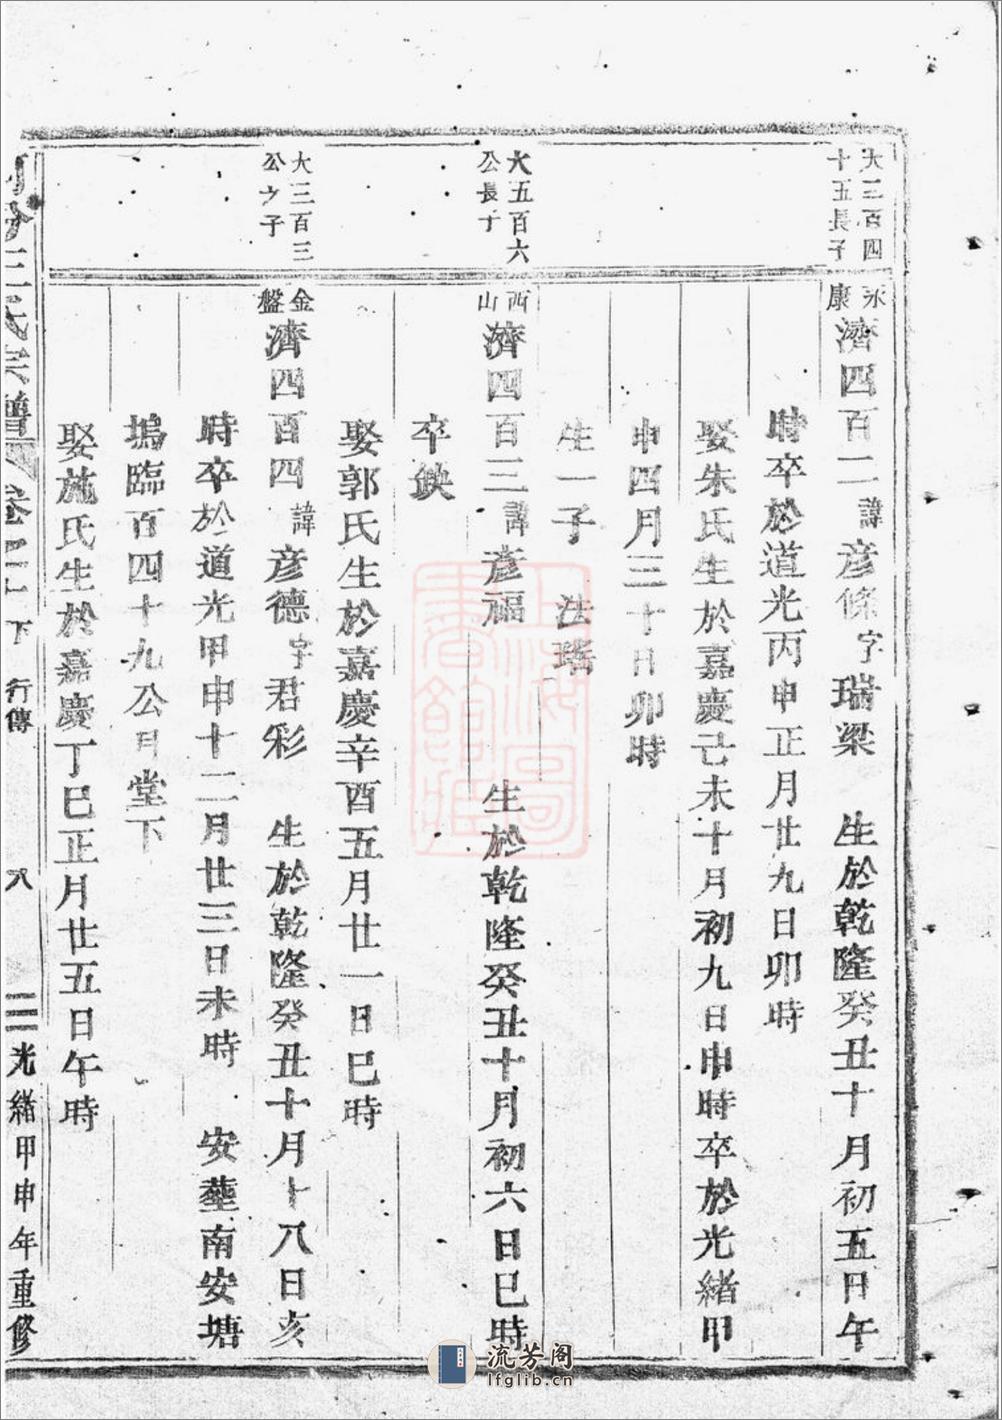 大三百四
十五長子
永康
濟四百二諱彥條字瑞梁 生於乾隆癸丑十月初五日午
時卒於道光丙申正月廿九日卯時
娶朱氏生於嘉慶己未十月初九日申時卒於光緒甲
申四月三十日卯時
生一子 法瑞
大五百六
公長子
西山
濟四百三諱彥福 生於乾隆癸丑十月初六日巳時
卒缺
娶郭氏生於嘉慶辛酉五月廿一日巳時
大三百三
公之子
金盤
濟四百四諱彥德字君彩 生於乾隆癸丑十月十八日亥
時卒於道光甲申十二月廿三日未時 安塟南安塘
塢臨百四十九公月堂下
娶施氏生於嘉慶丁巳正月廿五日午時
王氏宗譜 卷 下 行傳 八 三 光緒甲申年重修
上海圖書館藏
流芳阁
lfglib.cn